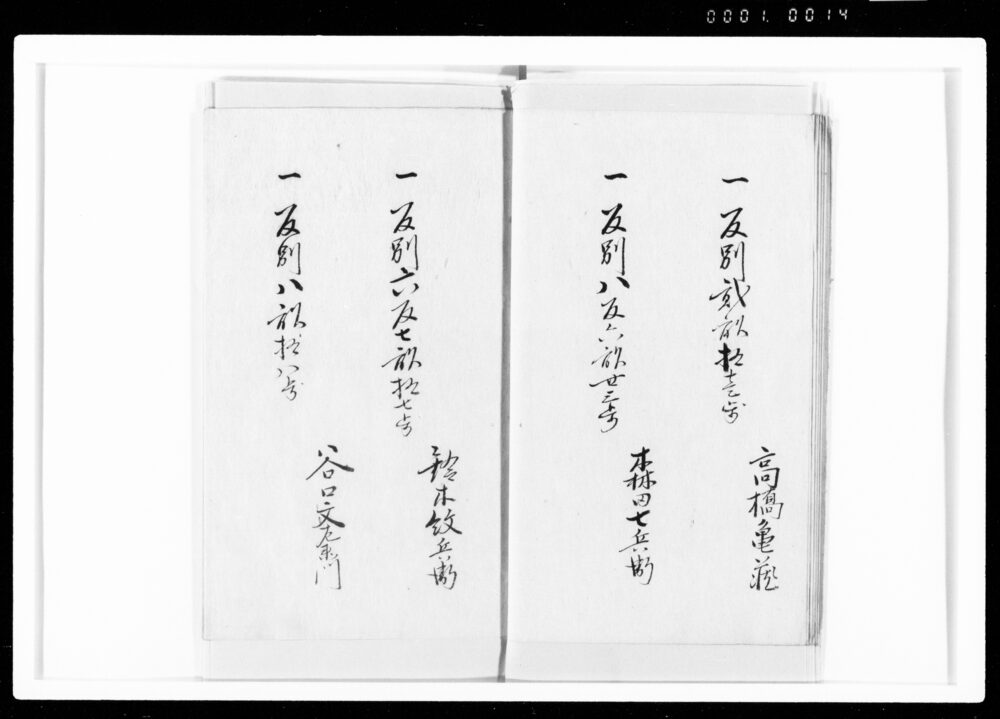 0001.0014
一反別弐畝拾三歩
高橋亀蔵
一反別八反六畝廿三歩
森田七兵衛
一反別六反七畝拾七歩
鈴木紋兵衛
一反別八畝拾八歩
谷口文左衛門